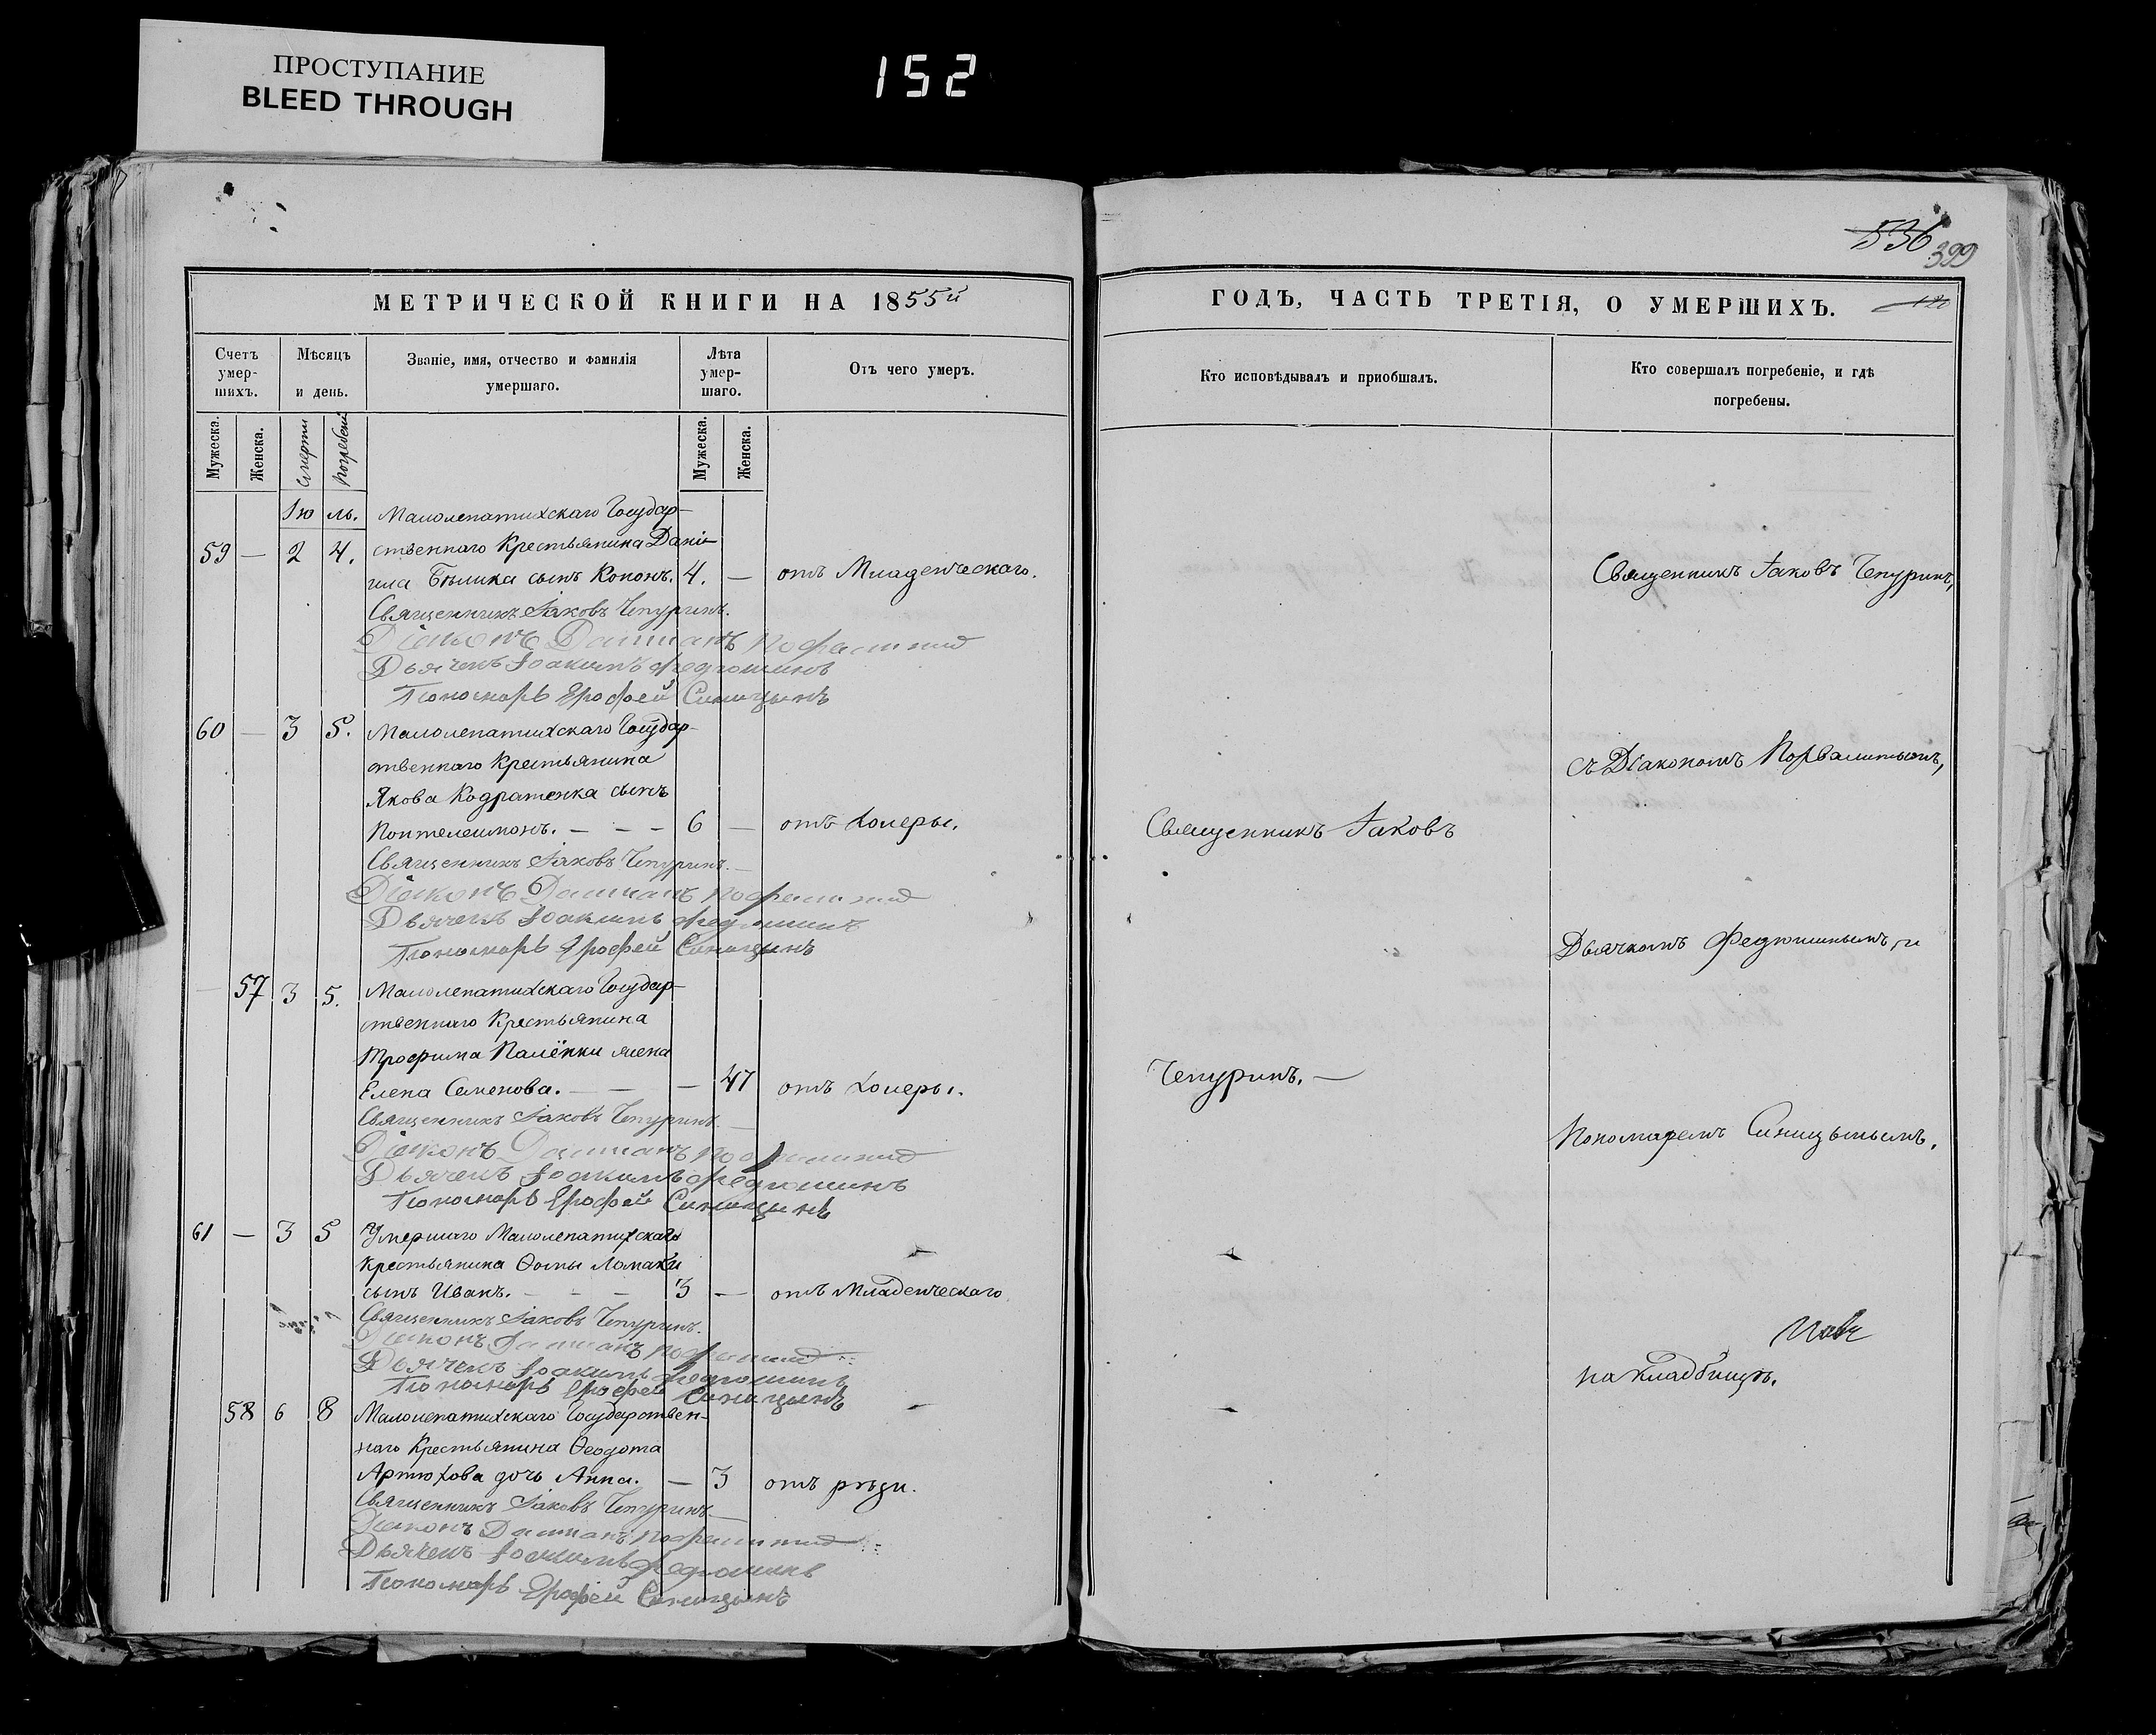 ПРОСТУПАНИЕ
BLEED THROUGH
152
МЕТРИЧЕСКОЙ КНИГИ НА 1855й
Счетъ умер-шихъ.
Мѣсяцъ и день.
Званіе, имя, отчество и фамилія умершаго.
Лѣта умер-шаго.
Отъ чего умеръ.
Мужеска.
Женска.
Смерти
Погребен
Мужеска.
Женска.
Іюль. Малолепатихскаго Государ-
59 — 2 4. ственнаго Крестьянина Дані-
ила Бѣлика сынъ Кононъ. 4. — отъ Младенческаго.
Священникъ Іаковъ Чепуринъ.
Діаконъ
Дьячекъ Іоакимъ Федюшинъ
Пономарь Ерофей Синицынъ
60 — 3 5. Малолепатихскаго Государ-
ственнаго Крестьянина
Якова Кодратенка сынъ
Пантелеимонъ. — — — 6 — отъ Холеры.
Священникъ Іаковъ Чепуринъ.
Діаконъ
Дьячекъ Іоакимъ Федюшинъ
Пономарь Ерофей Синицынъ
— 57 3 5. Малолепатихскаго Государ-
ственнаго Крестьянина
Трофима Палёнки жена
Елена Семенова. — — 47 отъ Холеры.
Священникъ Іаковъ Чепуринъ.
Діаконъ
Дьячекъ Іоакимъ Федюшинъ
Пономарь Ерофей Синицынъ
61 — 3 5 Умершаго Малолепатихскаго
Крестьянина Ѳомы Ломаки
сынъ Иванъ. — — — 3 — отъ Младенческаго
Священникъ Іаковъ Чепуринъ.
Діаконъ
Дьячекъ Іоакимъ Федюшинъ
Пономарь Ерофей Синицынъ
58 6 8 Малолепатихскаго Государствен-
наго Крестьянина Ѳеодота
Артюхова дочь Анна. — 3 отъ рѣзи.
Священникъ Іаковъ Чепуринъ.
Діаконъ
Дьячекъ Іоакимъ Федюшинъ
Пономарь Ерофей Синицынъ
536
399
ГОДЪ, ЧАСТЬ ТРЕТІЯ, О УМЕРШИХЪ.
Кто исповѣдывалъ и приобшалъ.
Кто совершалъ погребеніе, и гдѣ
погребены.
Священникъ Іаковъ Чепуринъ,
съ Діакономъ
Священникъ Іаковъ
Дьячкомъ Федюшинымъ, и
Чепуринъ. —
Пономаремъ Синицынымъ.
на кладбищѣ.